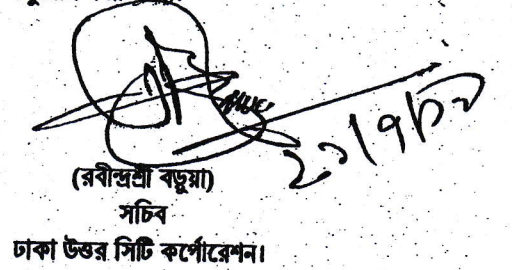 (রবীন্দ্রশ্রী বড়ুয়া)
সচিব
ঢাকা উত্তর সিটি কর্পোরেশন।